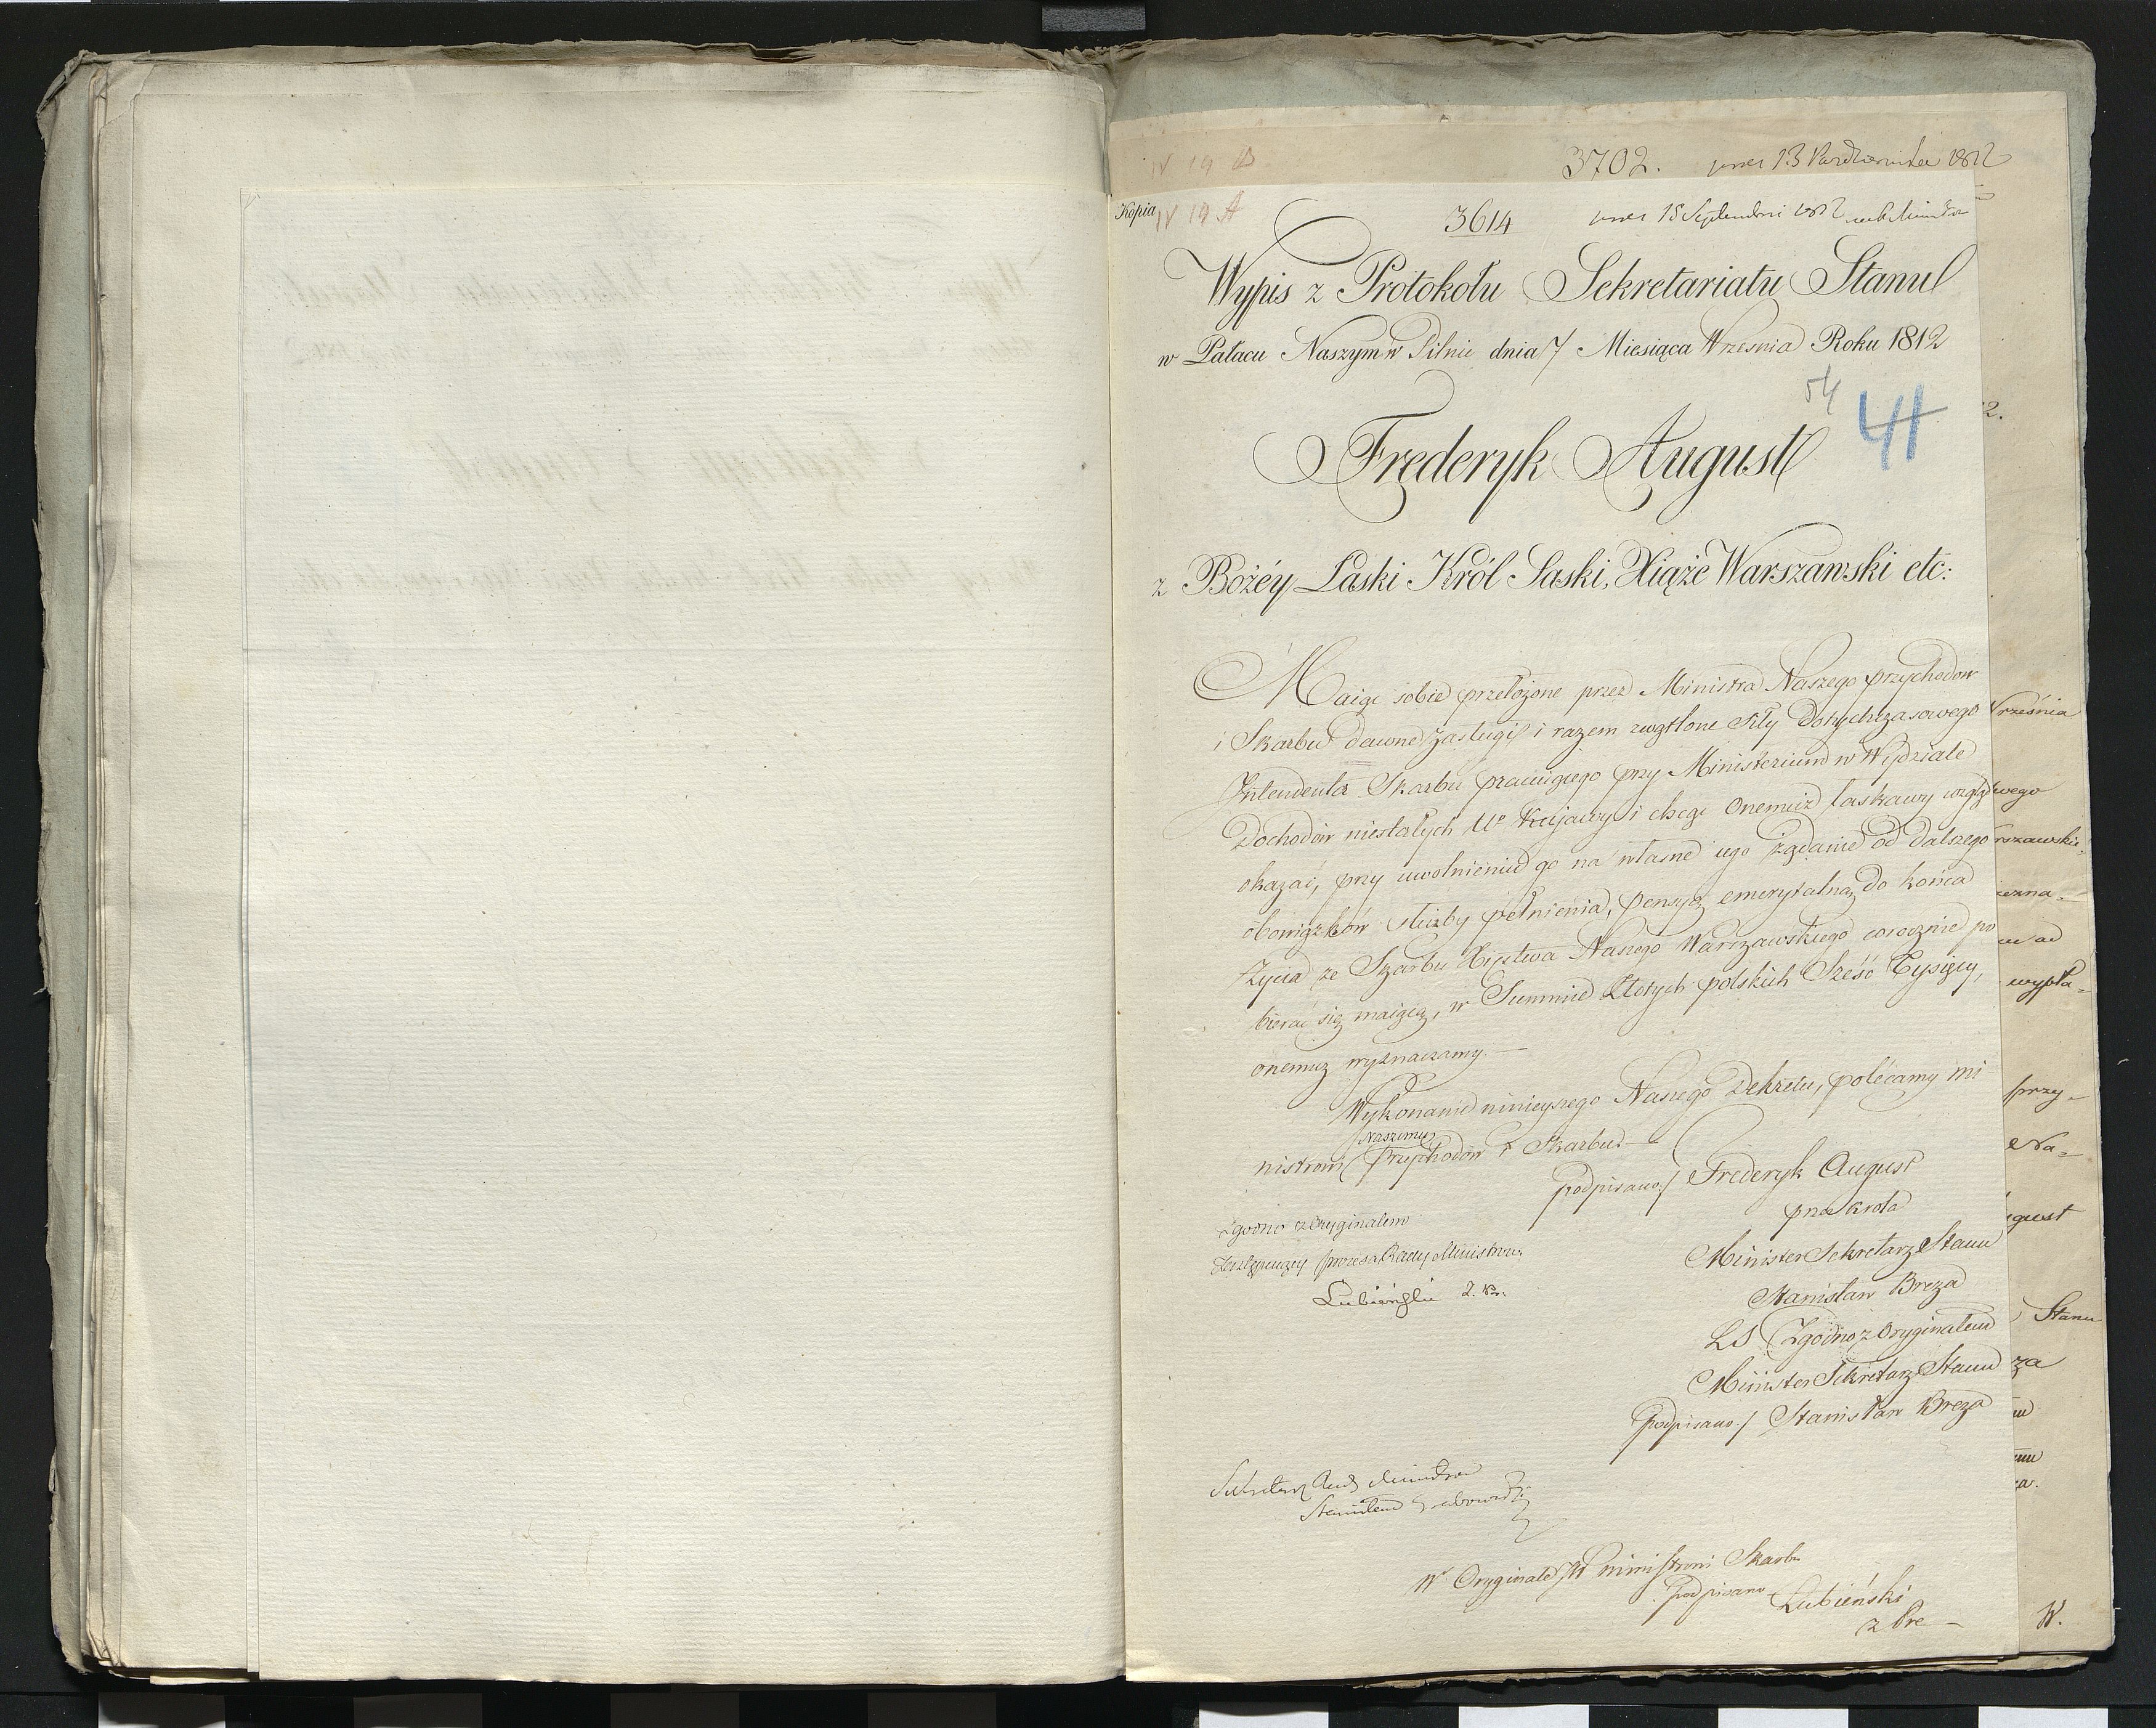 3702. 13 Października 1812
IV 19 B
Kopia IV 19 A
3614 15 Septembri 1812
Wypis z Protokołu Sekretariatu Stanu
w Pałacu Naszym w Pilnic dnia 7 Miesiąca Września Roku 1812
54 41
Frederyk August
z Bożéy Łaski Król Saski, Xiąże Warszawski etc:
Maiąc sobie przełożone przez Ministra Naszego przychodow
i Skarbu dawne zasługi i razem zwątlone siły dotychczasowego
Intendenta Skarbu pracuiącego przy Ministerium w Wydziale
Dochodów niestałych Ur Kujawy i chcąc onemuż łaskawy wzgląd
okazać, przy uwolnieniu go na własne iego żądanie od dalszego
obowiązków służby pełnienia, pensyą emerytalną do końca
życia ze Skarbu Xięstwa Naszego Warszawskiego corocznie po
bierać się maiącą, w Summie Złotych polskich Sześć Tysięcy,
onemuż wyznaczamy.—
Wykonanie ninieyszego Naszego Dekretu, polécamy mi
nistrowi Naszemu Przychodów i Skarbu.—
podpisano/ Frederyk August
przez Króla
Minister Sekretarz Stanu
Stanisław Breza
LS Zgodno z Oryginałem
Minister Sekretarz Stanu
podpisano/ Stanisław Breza
Zgodno z Oryginałem
Zastępuiący prezesa Rady Ministrow
Lubiński
Sekretarz Rady Ministrow
W Oryginale JW ministrowi Skarbu
podpisano Lubieński
z Pre
2.
Września
wego
rszawskie
ezna-
wypła-
przy-
Na-
gust
Stanu
za
W.